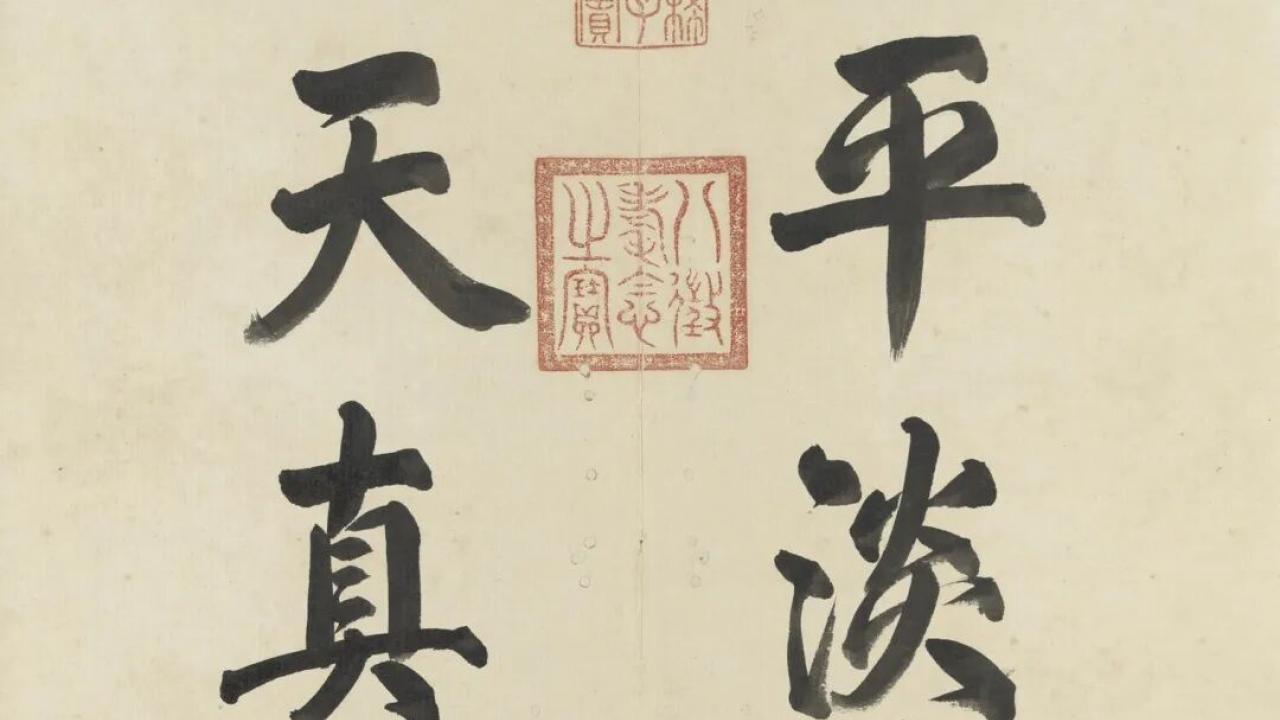 平淡
天真
八徵
耄念
之寶